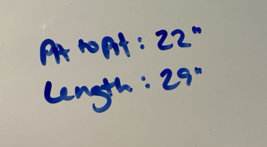 Pit to Pit: 22"
Length: 29"